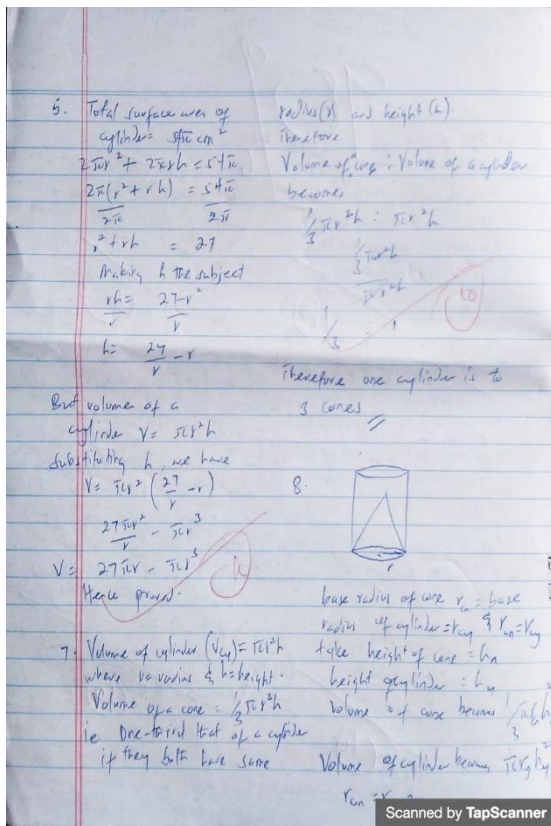 5. Total surface area of
cylinder = 54π cm²
2πr² + 2πrh = 54π
2π(r² + rh) = 54π
2π 2π
r² + rh = 27
Making h the subject
rh = 27-r²
r r
h = 27/r - r
But volume of a
cylinder V = πr²h
substituting h, we have
V = πr² (27/r - r)
27πr²/r - πr³
V = 27πr - πr³
Hence proved.
7. Volume of cylinder (Vcy) = πr²h
where r = radius & h = height.
Volume of a cone = 1/3 πr²h
ie one-third that of a cylinder
if they both have same
radius(r) and height (h)
Therefore
Volume of a cone : Volume of a cylinder
becomes
1/3 πr²h : πr²h
1/3 πr²h
πr²h
1/3 : 1
10
Therefore one cylinder is to
3 cones
8.
r
base radius of cone rcn = base
radius of cylinder = rcy & rcn = rcy
take height of cone = hn
height of cylinder = hy
Volume of cone becomes 1/3
Volume of cylinder becomes
Scanned by TapScanner